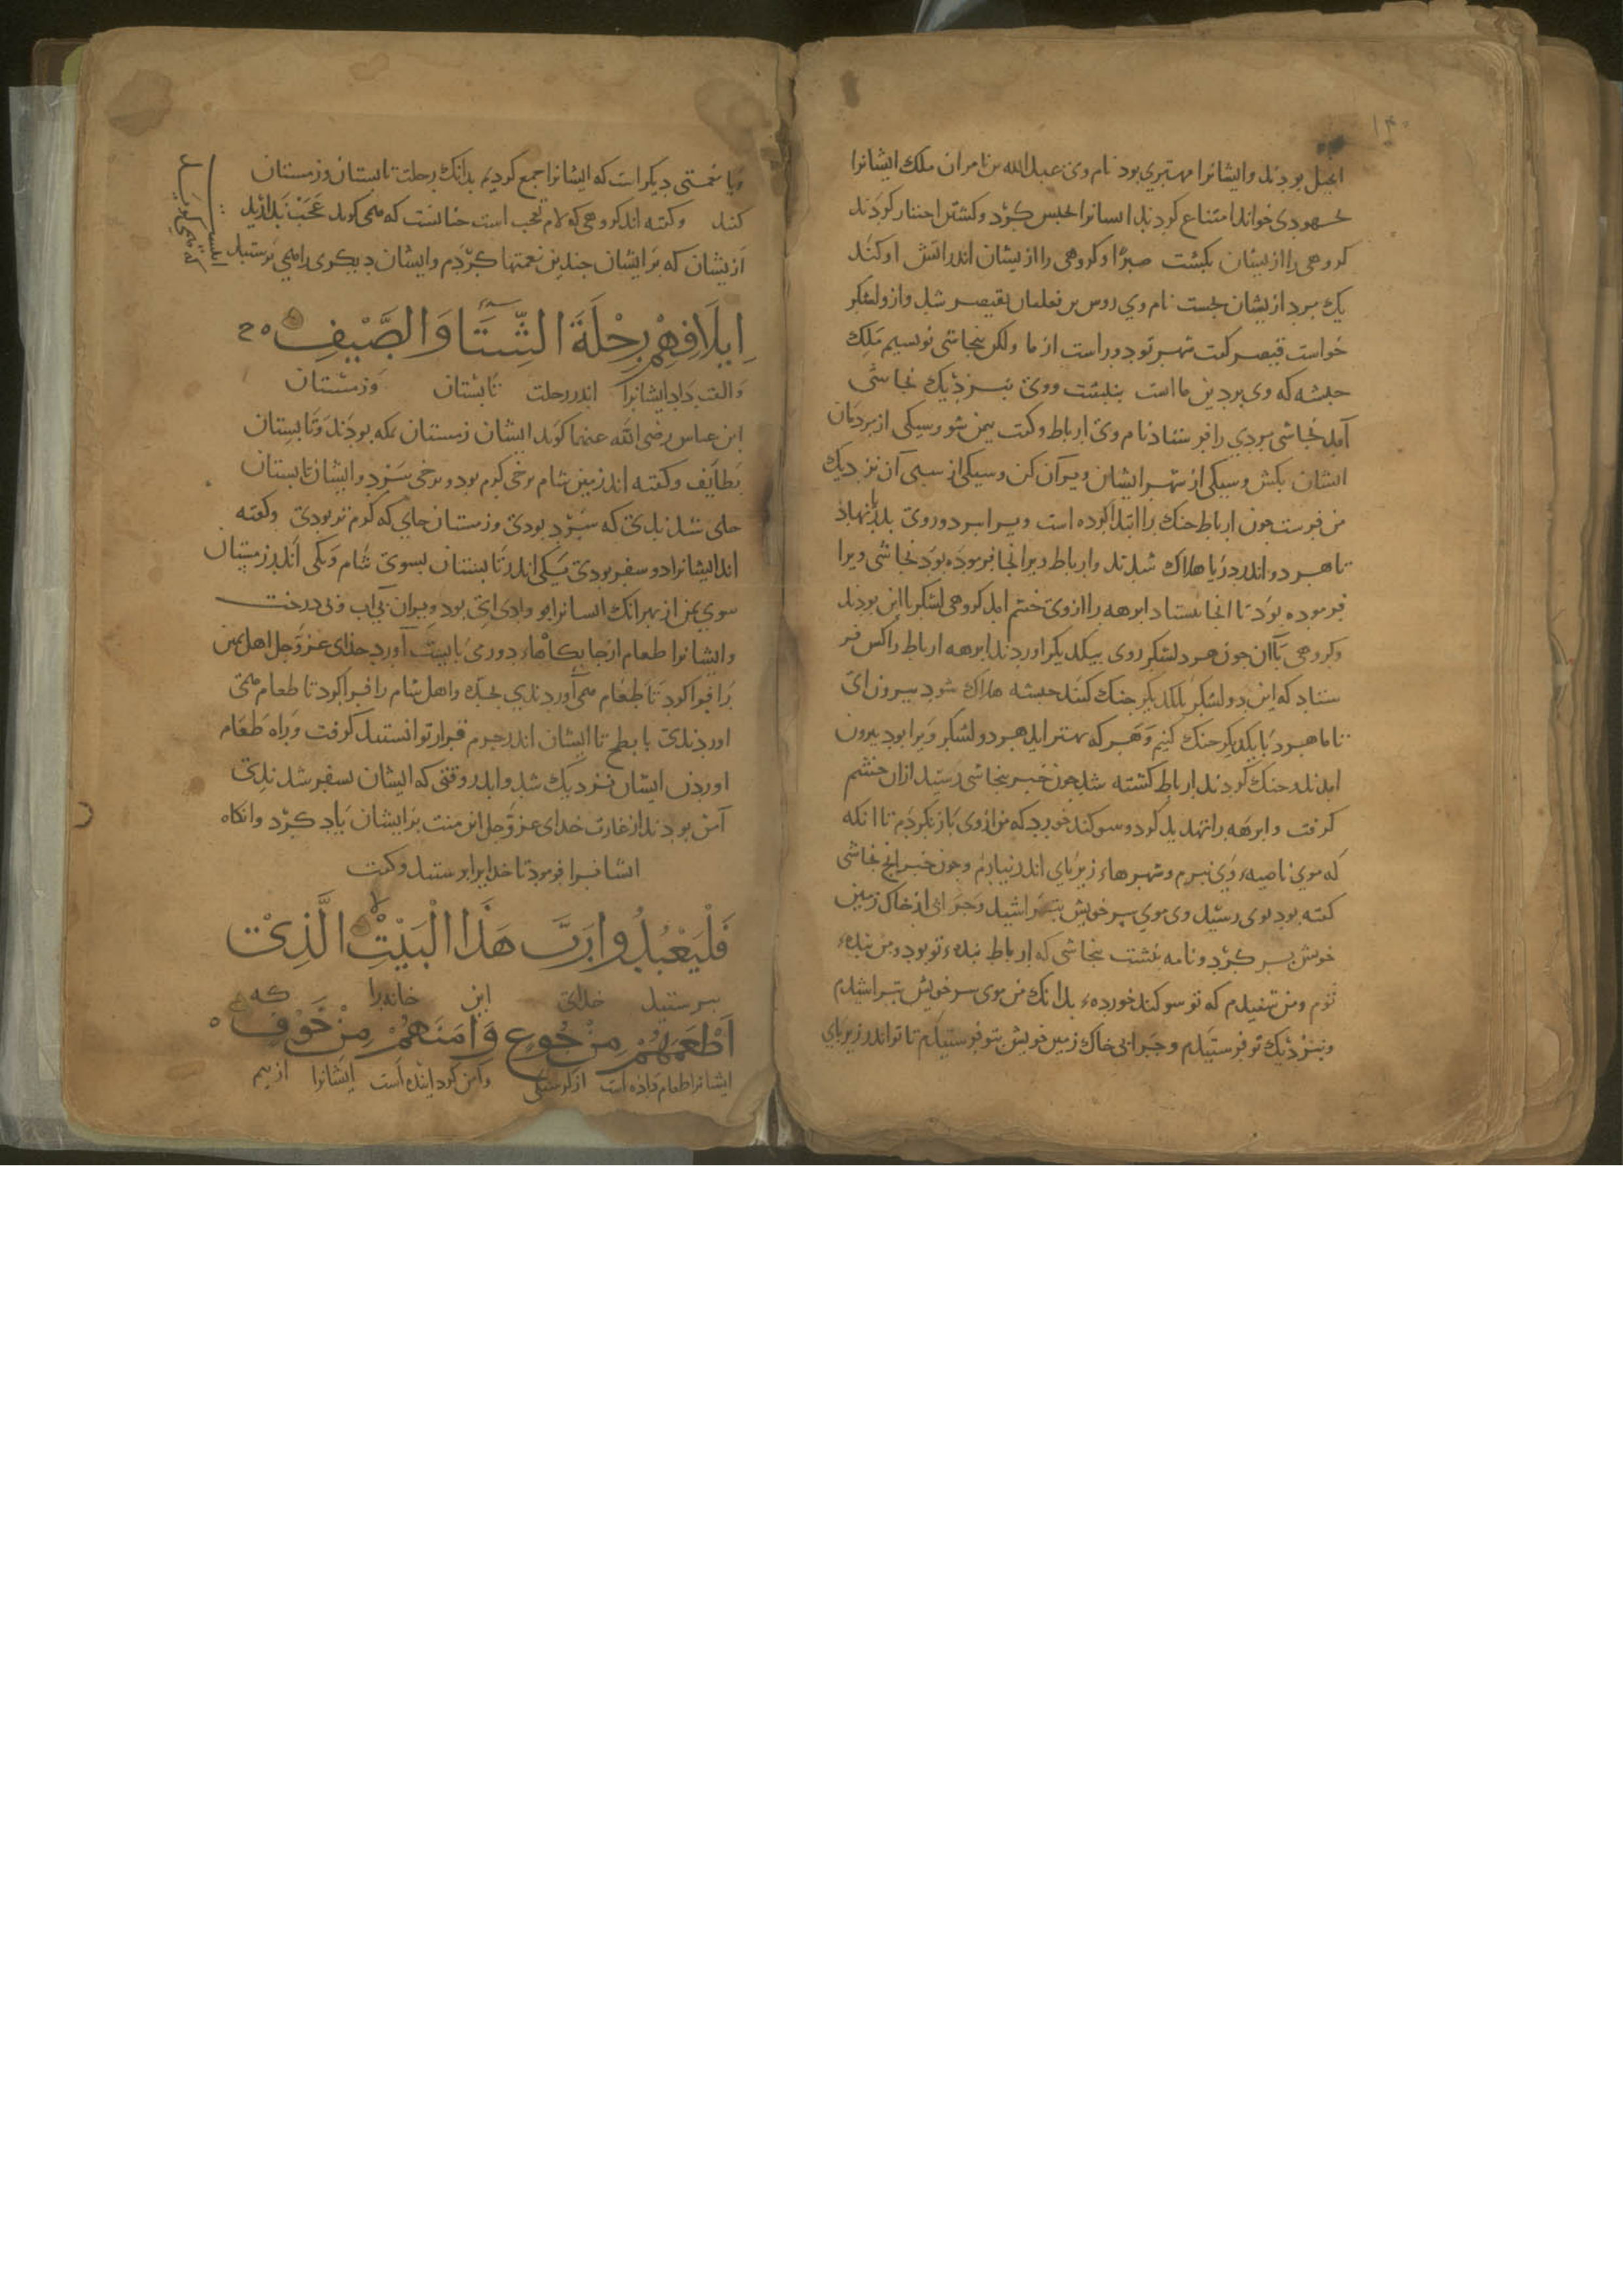 ۱۴۰
انجیل بودند وایشانرا مهتری بود نام وی عبدالله بن نامران ملک ایشانرا
بجهودی خواند امتناع کردند ایشانرا حبس کرد وکشتن اختیار کردند
کروهی را از یشان بکشت صبرا وکروهی را از یشان اندر اتش اوکند
یک مرد از یشان بجست نام وی دوس بن ثعلبان بقیصر شد وازو لشکر
خواست قیصر کفت شهر تو دور است از ما ولکن بنجاشی نویسیم ملک
حبشه که وی بردین ما است بنبشت ووی بنزدیک نجاشی
آمد نجاشی مردی را فرستاد نام وی ارباط وکفت بیمن شو وسیکی از مردمان
ایشان بکش وسیکی از شهر ایشان ویران کن وسیکی از سبی آن نزدیک
من فرست چون ارباط جنک را ابتدا کرده است ویرا سرد وروی بدریا نهاذ
تا هر دو اندر دریا هلاک شدند وارباط ویرا انجا فرموده بود نجاشی ویرا
فرموده بود تا انجا بیستاد ابرهه را ازوی خشم امد کروهی لشکر با این بودند
وکروهی باآن چون هر دو لشکر روی بیکدیکر اوردند ابرهه ارباط را کس فر
ستاد که این دو لشکر بایکدیکر جنک کنند حبشه هلاک شود بیرون ای
تا ما هردو بایکدیکر جنک کنیم وهر که بهتر اید هر دو لشکر ویرا بود بیرون
امدند وجنک کردند ارباط کشته شد چون خبر بنجاشی رسید ازان خشم
کرفت وابرهه را تهدید کرد وسوکند خورد که من ازوی باز نکردم تا انکه
که موی ناصیهٔ وی نبرم وشهرهاء زیر پای اندر نیارم وچون خبر انچ نجاشی
کفته بود بوی رسید وی موی سر خویش بتراشید وجرابی از خاک زمین
خویش پر کرد ونامه نبشت بنجاشی که ارباط بندهٔ تو بود ومن بندهٔ
توم ومن شنیدم که تو سوکند خوردهٔ بدانک من موی سر خویش بتراشیدم
وبنزدیک تو فرستیدم وجرابی خاک زمین خویش بتو فرستیدم تا تو اندر زیر پای
ویا نعمتی دیکر است که ایشانرا جمع کردیم بدانک رحلت تابستان وزمستان
کنند وکفته اند کروهی که لام تعجب است چنانست که همی کوید عجب بدارید
ازیشان که بر ایشان چندین نعمتها کردم وایشان دیکری را همی پرستند
اِیلَافِهِمْ رِحْلَةَ الشِّتَآءِ وَالصَّیْفِ
والفت داد ایشانرا اندر رحلت تابستان وزمستان
ابن عباس رضی الله عنهما کوید ایشان زمستان بمکه بودند وتابستان
بطایف وکفته اند زمین شام برخی کرم بود وبرخی سرد وایشان تابستان
جای شدندی که سرد بودی وزمستان جای که کرم تر بودی وکفته
اند ایشانرا دو سفر بودی یکی اندر تابستان بسوی شام ویکی اندر زمستان
سوی یمن از بهر انک ایشانرا بو وادی ای بود ویران بی آب وبی درخت
وایشانرا طعام از جایکاهاء دور می بایست آورد خدای عزوجل اهل یمن
را فرا کرد تا طعام همی آوردندی بجده واهل شام را فرا کرد تا طعام همی
اوردندی بابطح تا ایشان اندر حرم قرار توانستند کرفت وبراه طعام
اوردن ایشان نزدیک شد واندر وقتی که ایشان بسفر شدندی
آمن بودند از غارت خدای عزوجل این منت بر ایشان یاد کرد وانکاه
ایشانرا فرمود تا خدایرا پرستند وکفت
فَلْیَعْبُدُوا رَبَّ هَذَا الْبَیْتِ الَّذِیْ
بپرستید خدای این خانه را که
اَطْعَمَهُمْ مِنْ جُوعٍ وَآمَنَهُمْ مِنْ خَوْفٍ
ایشانرا طعام داذه است از کرسنکی وامن کردانیده است ایشانرا از بیم